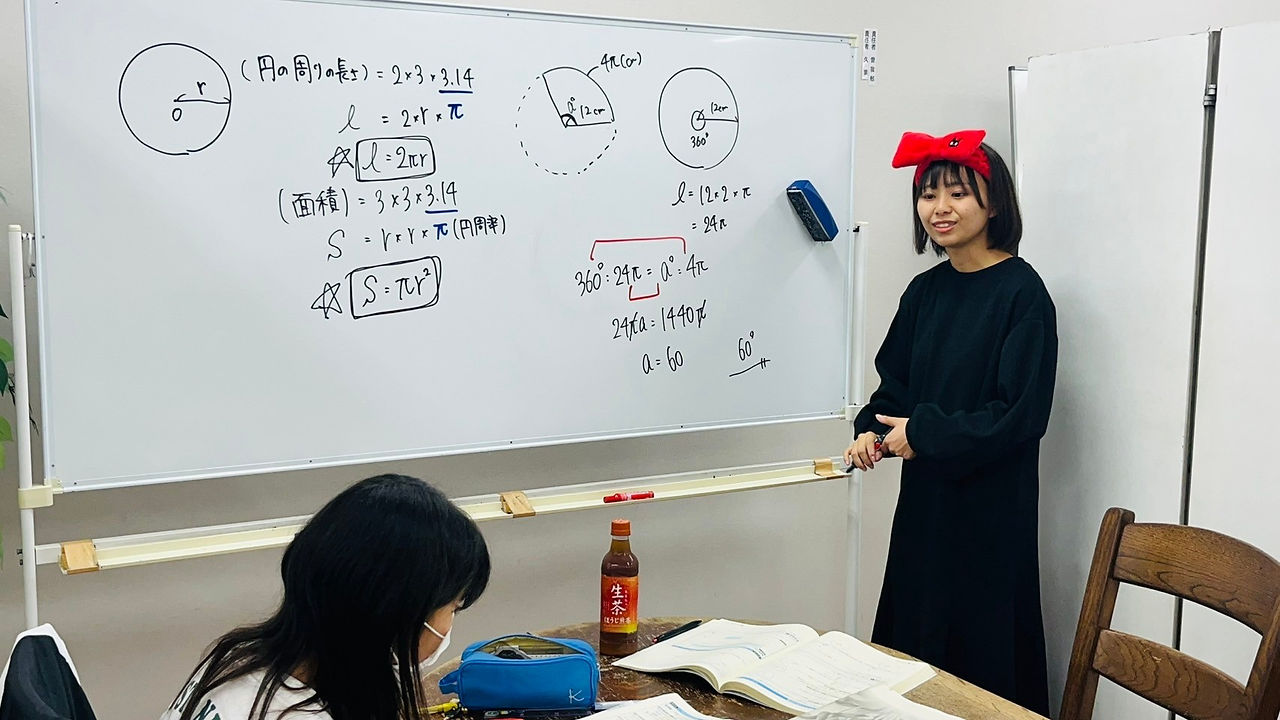 r
O
(円の周りの長さ) = 2×3×3.14
l = 2×r×π
☆ l = 2πr
(面積) = 3×3×3.14
S = r×r×π (円周率)
☆ S = πr²
4π(cm)
a°
12cm
12cm
360°
l = 12×2×π
= 24π
360° : 24π = a° : 4π
24πa = 1440π
a = 60
60°
生茶
ほうじ煎茶
K
NE